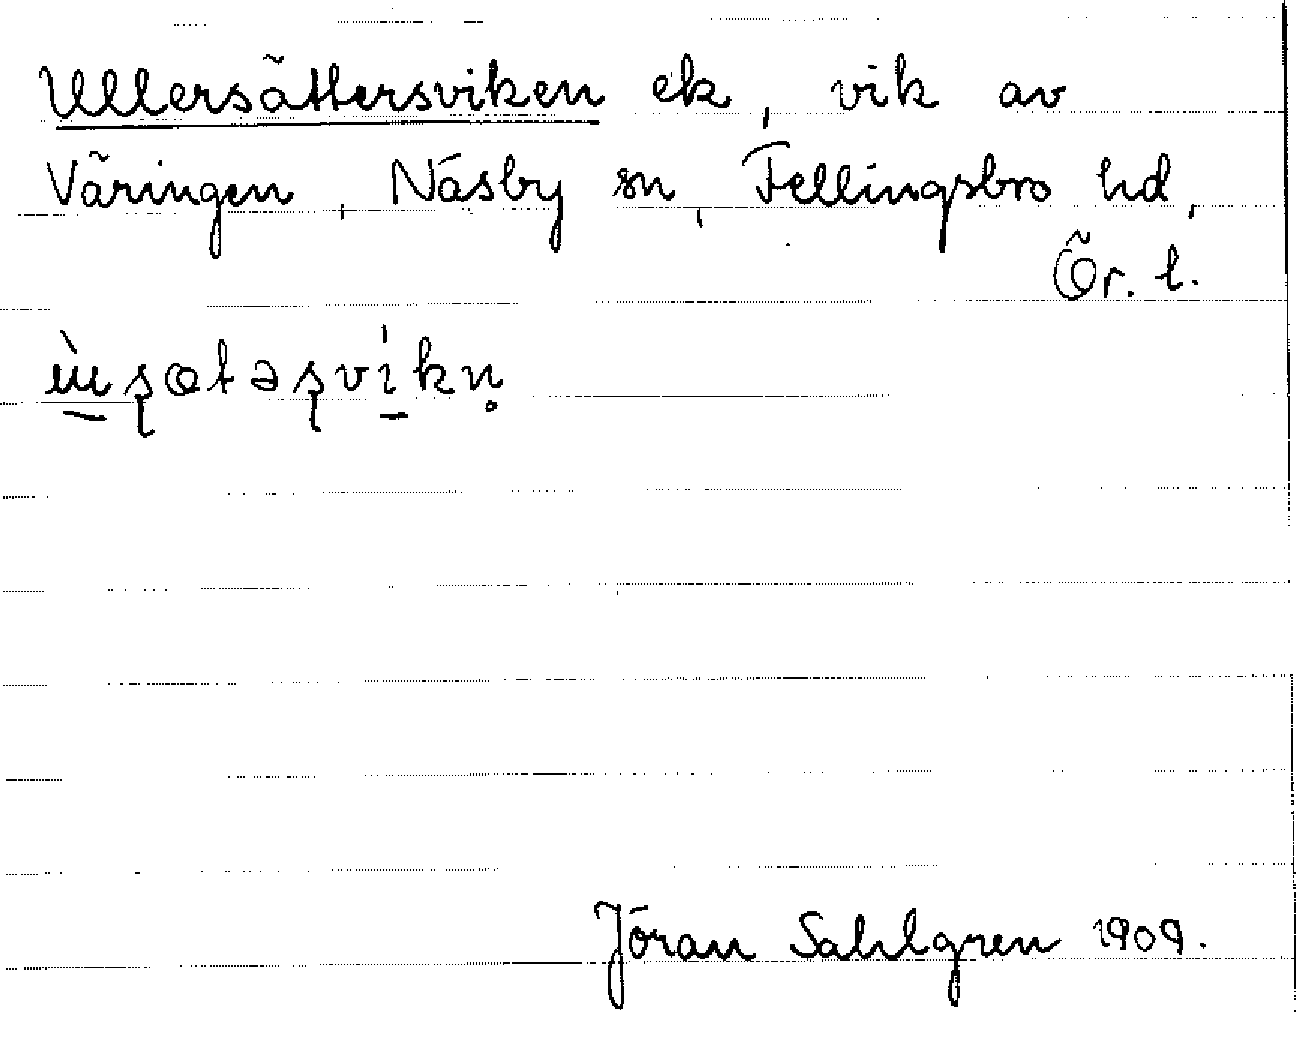 Ullersättersviken ek, vik av
Väringen, Näsby sn, Fellingsbro hd,
Ör. l.
Jöran Sahlgren 1909.